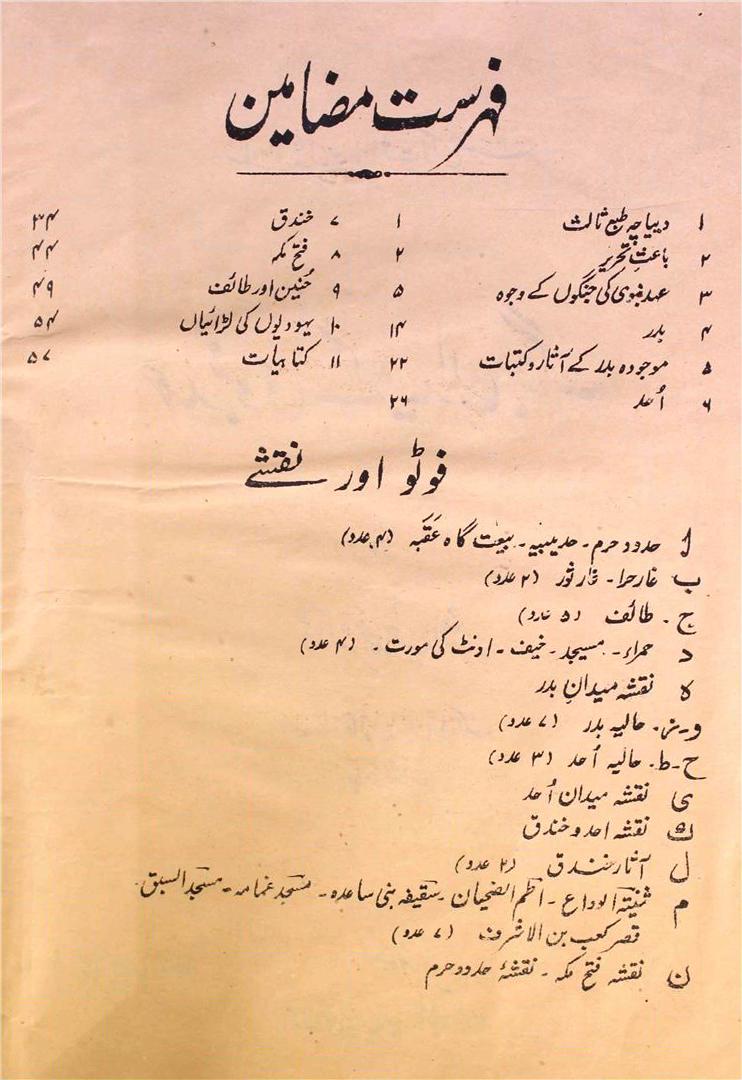 فہرست مضامین
۱ دیباچہ طبع ثالث ۱
۲ باعثِ تحریر ۲
۳ عہد نبوی کی جنگوں کے وجوہ ۵
۴ بدر ۱۴
۵ موجودہ بدر کے آثار و کتبات ۲۲
۶ اُحد ۲۶
۷ خندق ۳۴
۸ فتح مکہ ۴۴
۹ حُنین اور طائف ۴۹
۱۰ یہودیوں کی لڑائیاں ۵۴
۱۱ کتابیات ۵۷
فوٹو اور نقشے
ا حدود حرم۔ حدیبیہ۔ بیعت گاہ عَقَبہ (۴ عدد)
ب غار حرا۔ غار ثور (۲ عدد)
ج۔ طائف (۵ عدد)
د حمراء۔ مسیجد۔ خیف۔ اونٹ کی مورت۔ (۴ عدد)
ہ نقشہ میدانِ بدر
و۔ز۔ حالیہ بدر (۷ عدد)
ح۔ط۔ حالیہ اُحد (۳ عدد)
ی نقشہ میدان اُحد
ک نقشہ احد و خندق
ل آثار خندق (۲ عدد)
م ثنیتہ الوداع۔ اطم الضحیان۔ سقیفہ بنی ساعدہ۔ مسجد غمامہ۔ مسجد السبق۔
قصر کعب بن الاشرف (۷ عدد)
ن نقشہ فتح مکہ۔ نقشۂ حدود حرم